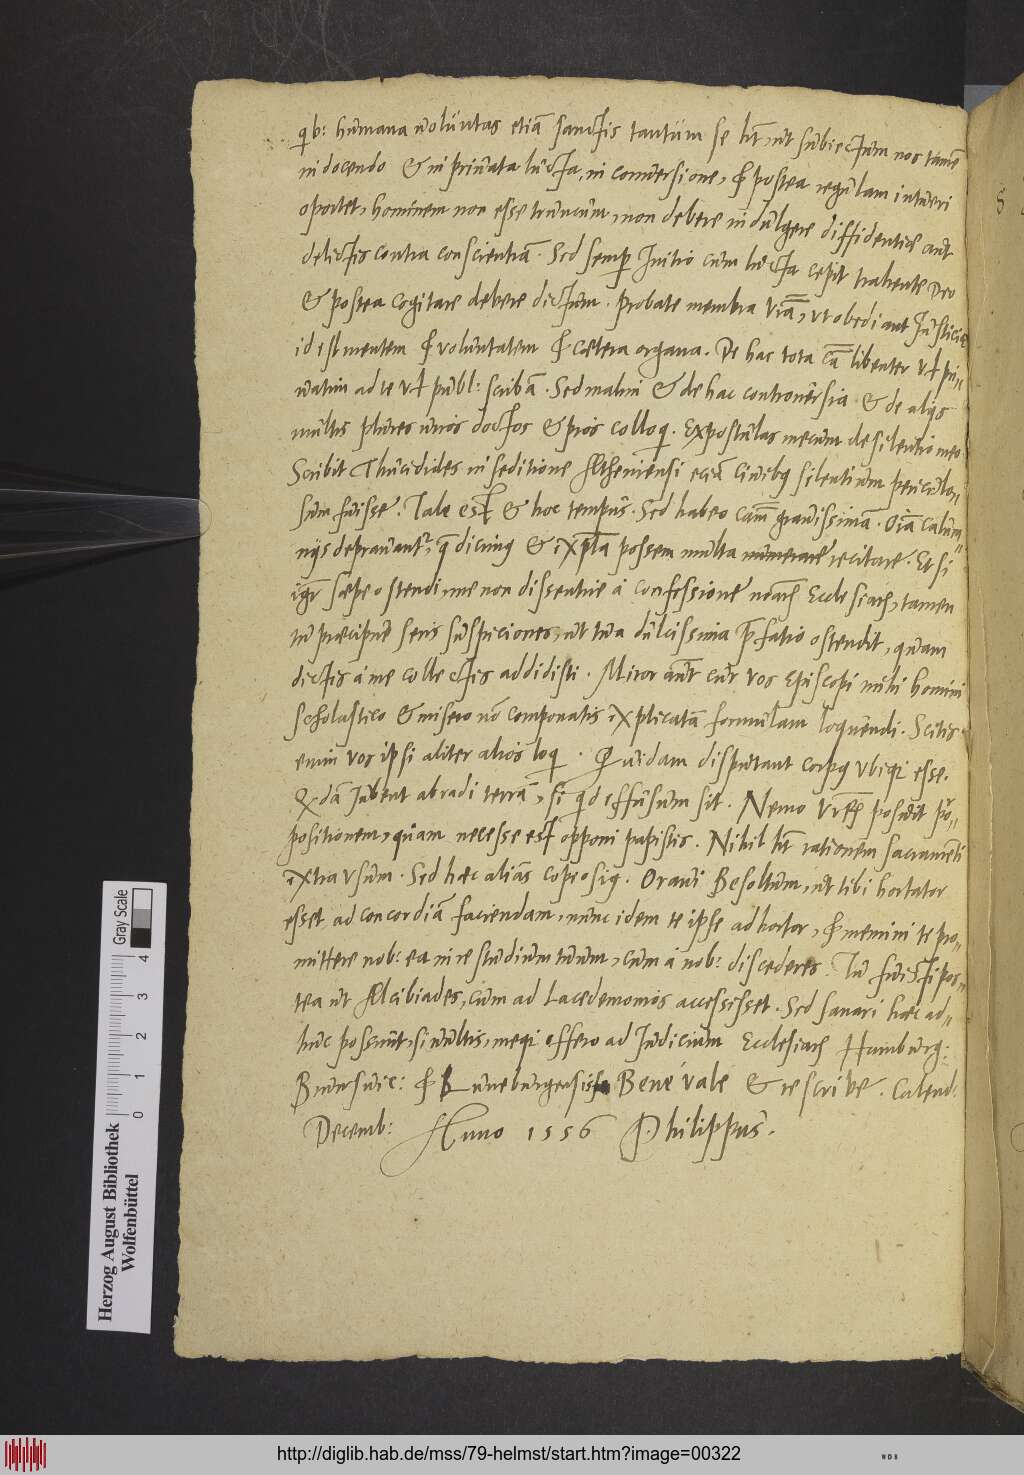 qb: humana voluntas etiã sanctis tantum se hẽt, ut subiectum nos tamẽ
in docendo & in priuata lucta, in conuersione, & postea regulam intueri
oportet, hominem non esse truncum, non debere indulgere diffidentiæ aut
delictis contra conscientiã. Sed semp Initio cum lucta cepit trahente Deo
& postea cogitare debere dictum. Probate membra vrã, vt obediant Justiciæ
id est mentem & voluntatem & cætera organa. De hac tota cã libenter vel pri-
uatim ad te vel publ: scribã. Sed malim & de hac controuersia & de alijs
multis plures viros doctos & pios colloqi. Expostulas mecum de silentio meo
Scribit Thucidides in seditione Atheniensi eciã Ciuibg silentium periculo-
sum fuisse. Tale est & hoc tempus. Sed habeo cam grauissimã. Oĩa calum-
nijs deprauant, q dicimg & expla possem multa recitare. Et si
igr sæpe ostendi me non dissentire à confessione Ecclesiarũ, tamen
tu præcipue seris suspiciones, ut tua dulcissima pfatio ostendit, quam
dictis à me collectis addidisti. Miror aut cur vos Episcopi mihi homini
scholastico & misero nõ componatis explicatã formulam loquendi. Scitis
enim vos ipsi aliter alios loqi. Quidam disputant corpg vbiqi esse.
Qdã Jubent abradi terrã, si qd effusum sit. Nemo vrũ posuit pro-
positionem, quam necesse est opponi papistis. Nihil hẽt rationem sacramẽti
extra vsum. Sed hæc aliàs copiosig. Oraui Besoltum, ut tibi hortator
esset ad concordiã faciendam, nunc idem te ipse adhortor, & memini te pro-
mittere nob: ea in re studium tuum, cum à nob: discederes. Tu fuisti pos-
tea ut Alcibiades, cum ad Lacedemonios accessisset. Sed sanari hæc ad-
huc possunt, si uultis, meqi offero ad Iudicium Ecclesiarũ Hamburg:
Brunsuic: & Luneburgensis Bene vale & rescribe. Calend:
Decemb: Anno 1556 Philippus.
Herzog August Bibliothek
Wolfenbüttel
0 1 2 3 4
Gray Scale
http://diglib.hab.de/mss/79-helmst/start.htm?image=00322